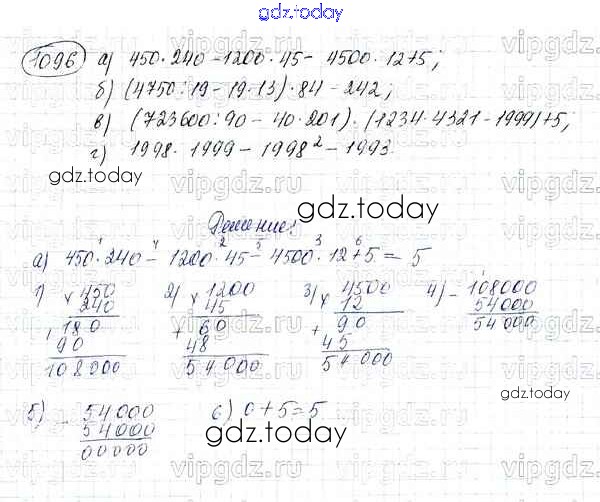 gdz.today
1096 а) 450·240-1200·45-4500·12+5;
б) (4750:19-19·13)·84-242;
в) (723600:90-40·201)·(1234·4321-1999)+5;
г) 1998·1999-1998²-1993
gdz.today
gdz.today
Решение:
1 4 2 5 3 6
а) 450·240-1200·45-4500·12+5=5
1) × 450
240
+ 180
90
108000
2) × 1200
45
+ 60
48
54000
3) × 4500
12
+ 90
45
54000
4) - 108000
54000
54000
gdz.today
5) - 54000
54000
00000
6) 0+5=5
gdz.today
vipgdz.ru